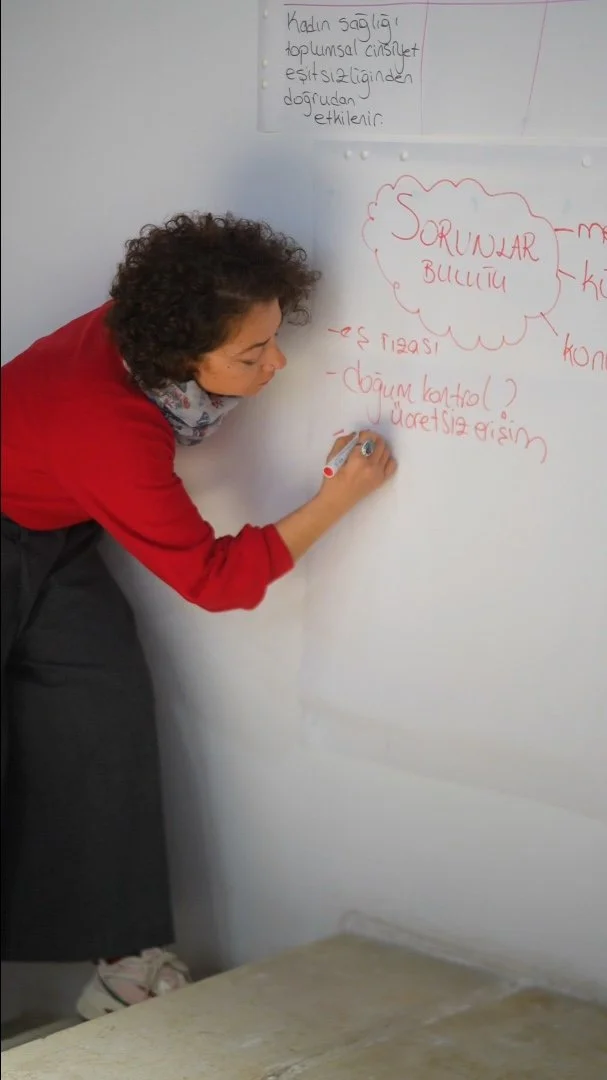 Kadın sağlığı
toplumsal cinsiyet
eşitsizliğinden
doğrudan
etkilenir.
SORUNLAR
BULUTU
- eş rızası
- doğum kontrol ?
ücretsiz erişim